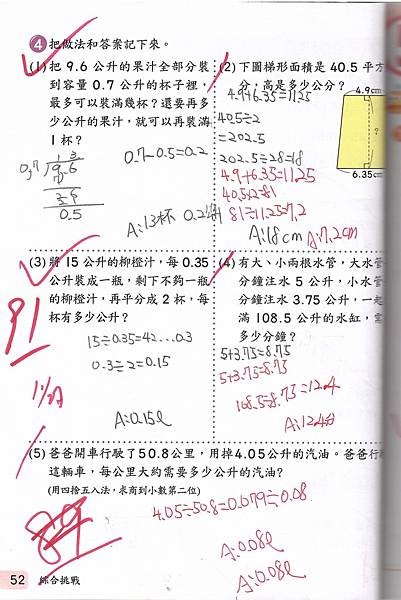 4 把做法和答案記下來。
(1) 把 9.6 公升的果汁全部分裝
到容量 0.7 公升的杯子裡，
最多可以裝滿幾杯？還要再多
少公升的果汁，就可以再裝滿
1 杯？
0.7-0.5=0.2
0.5
A:13杯 0.2
(2) 下圖梯形面積是 40.5 平方
分，高是多少公分？
4.9cm
?
6.35cm
4.9+6.35=11.25
405÷2
=202.5
202.5÷28=18
4.9+6.35=11.25
40.5×2=81
81÷11.25=7.2
A:18cm A:7.2cm
(3) 將 15 公升的柳橙汁，每 0.35
公升裝成一瓶，剩下不夠一瓶
的柳橙汁，再平分成 2 杯，每
杯有多少公升？
15÷0.35=42...0.3
0.3÷2=0.15
A:0.15l
91
(4) 有大、小兩根水管，大水管
分鐘注水 5 公升，小水管
分鐘注水 3.75 公升，一起
滿 108.5 公升的水缸，需
多少分鐘？
5+3.75=8.75
5+3.75=8.75
108.5÷8.75=12.4
A:12.4分
(5) 爸爸開車行駛了50.8公里，用掉4.05公升的汽油。爸爸行
這輛車，每公里大約需要多少公升的汽油？
(用四捨五入法，求商到小數第二位)
4.05÷50.8=0.079÷0.08
A:0.08l
A:0.08l
89
52 綜合挑戰